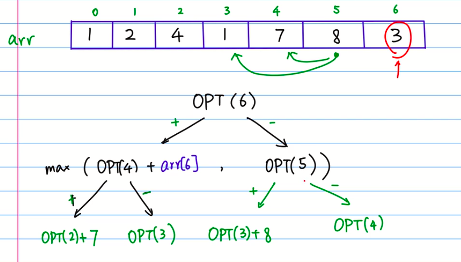 0 1 2 3 4 5 6
arr 1 2 4 1 7 8 3
OPT(6)
+ -
max ( OPT(4) + arr[6] , OPT(5) )
+ - + -
OPT(2)+7 OPT(3) OPT(3)+8 OPT(4)